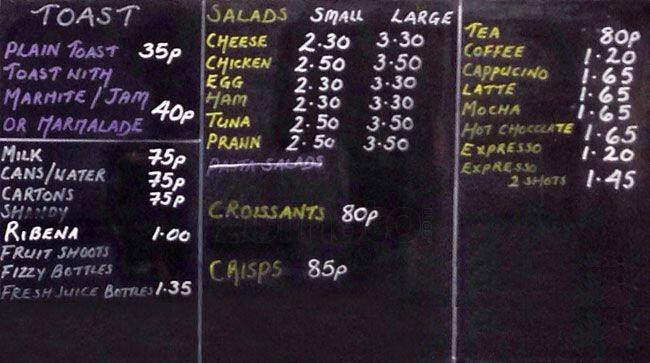 TOAST
PLAIN TOAST 35p
TOAST WITH
MARMITE / JAM
OR MARMALADE 40p
MILK 75p
CANS/WATER 75p
CARTONS 75p
SHANDY
RIBENA 1.00
FRUIT SHOOTS
FIZZY BOTTLES
FRESH JUICE BOTTLES 1.35
SALADS SMALL LARGE
CHEESE 2.30 3.30
CHICKEN 2.50 3.50
EGG 2.30 3.30
HAM 2.30 3.30
TUNA 2.50 3.50
PRAWN 2.50 3.50
PASTA SALADS
CROISSANTS 80p
CRISPS 85p
TEA 80p
COFFEE 1.20
CAPPUCINO 1.65
LATTE 1.65
MOCHA
HOT CHOCOLATE 1.65
EXPRESSO 1.20
EXPRESSO
2 SHOTS 1.45